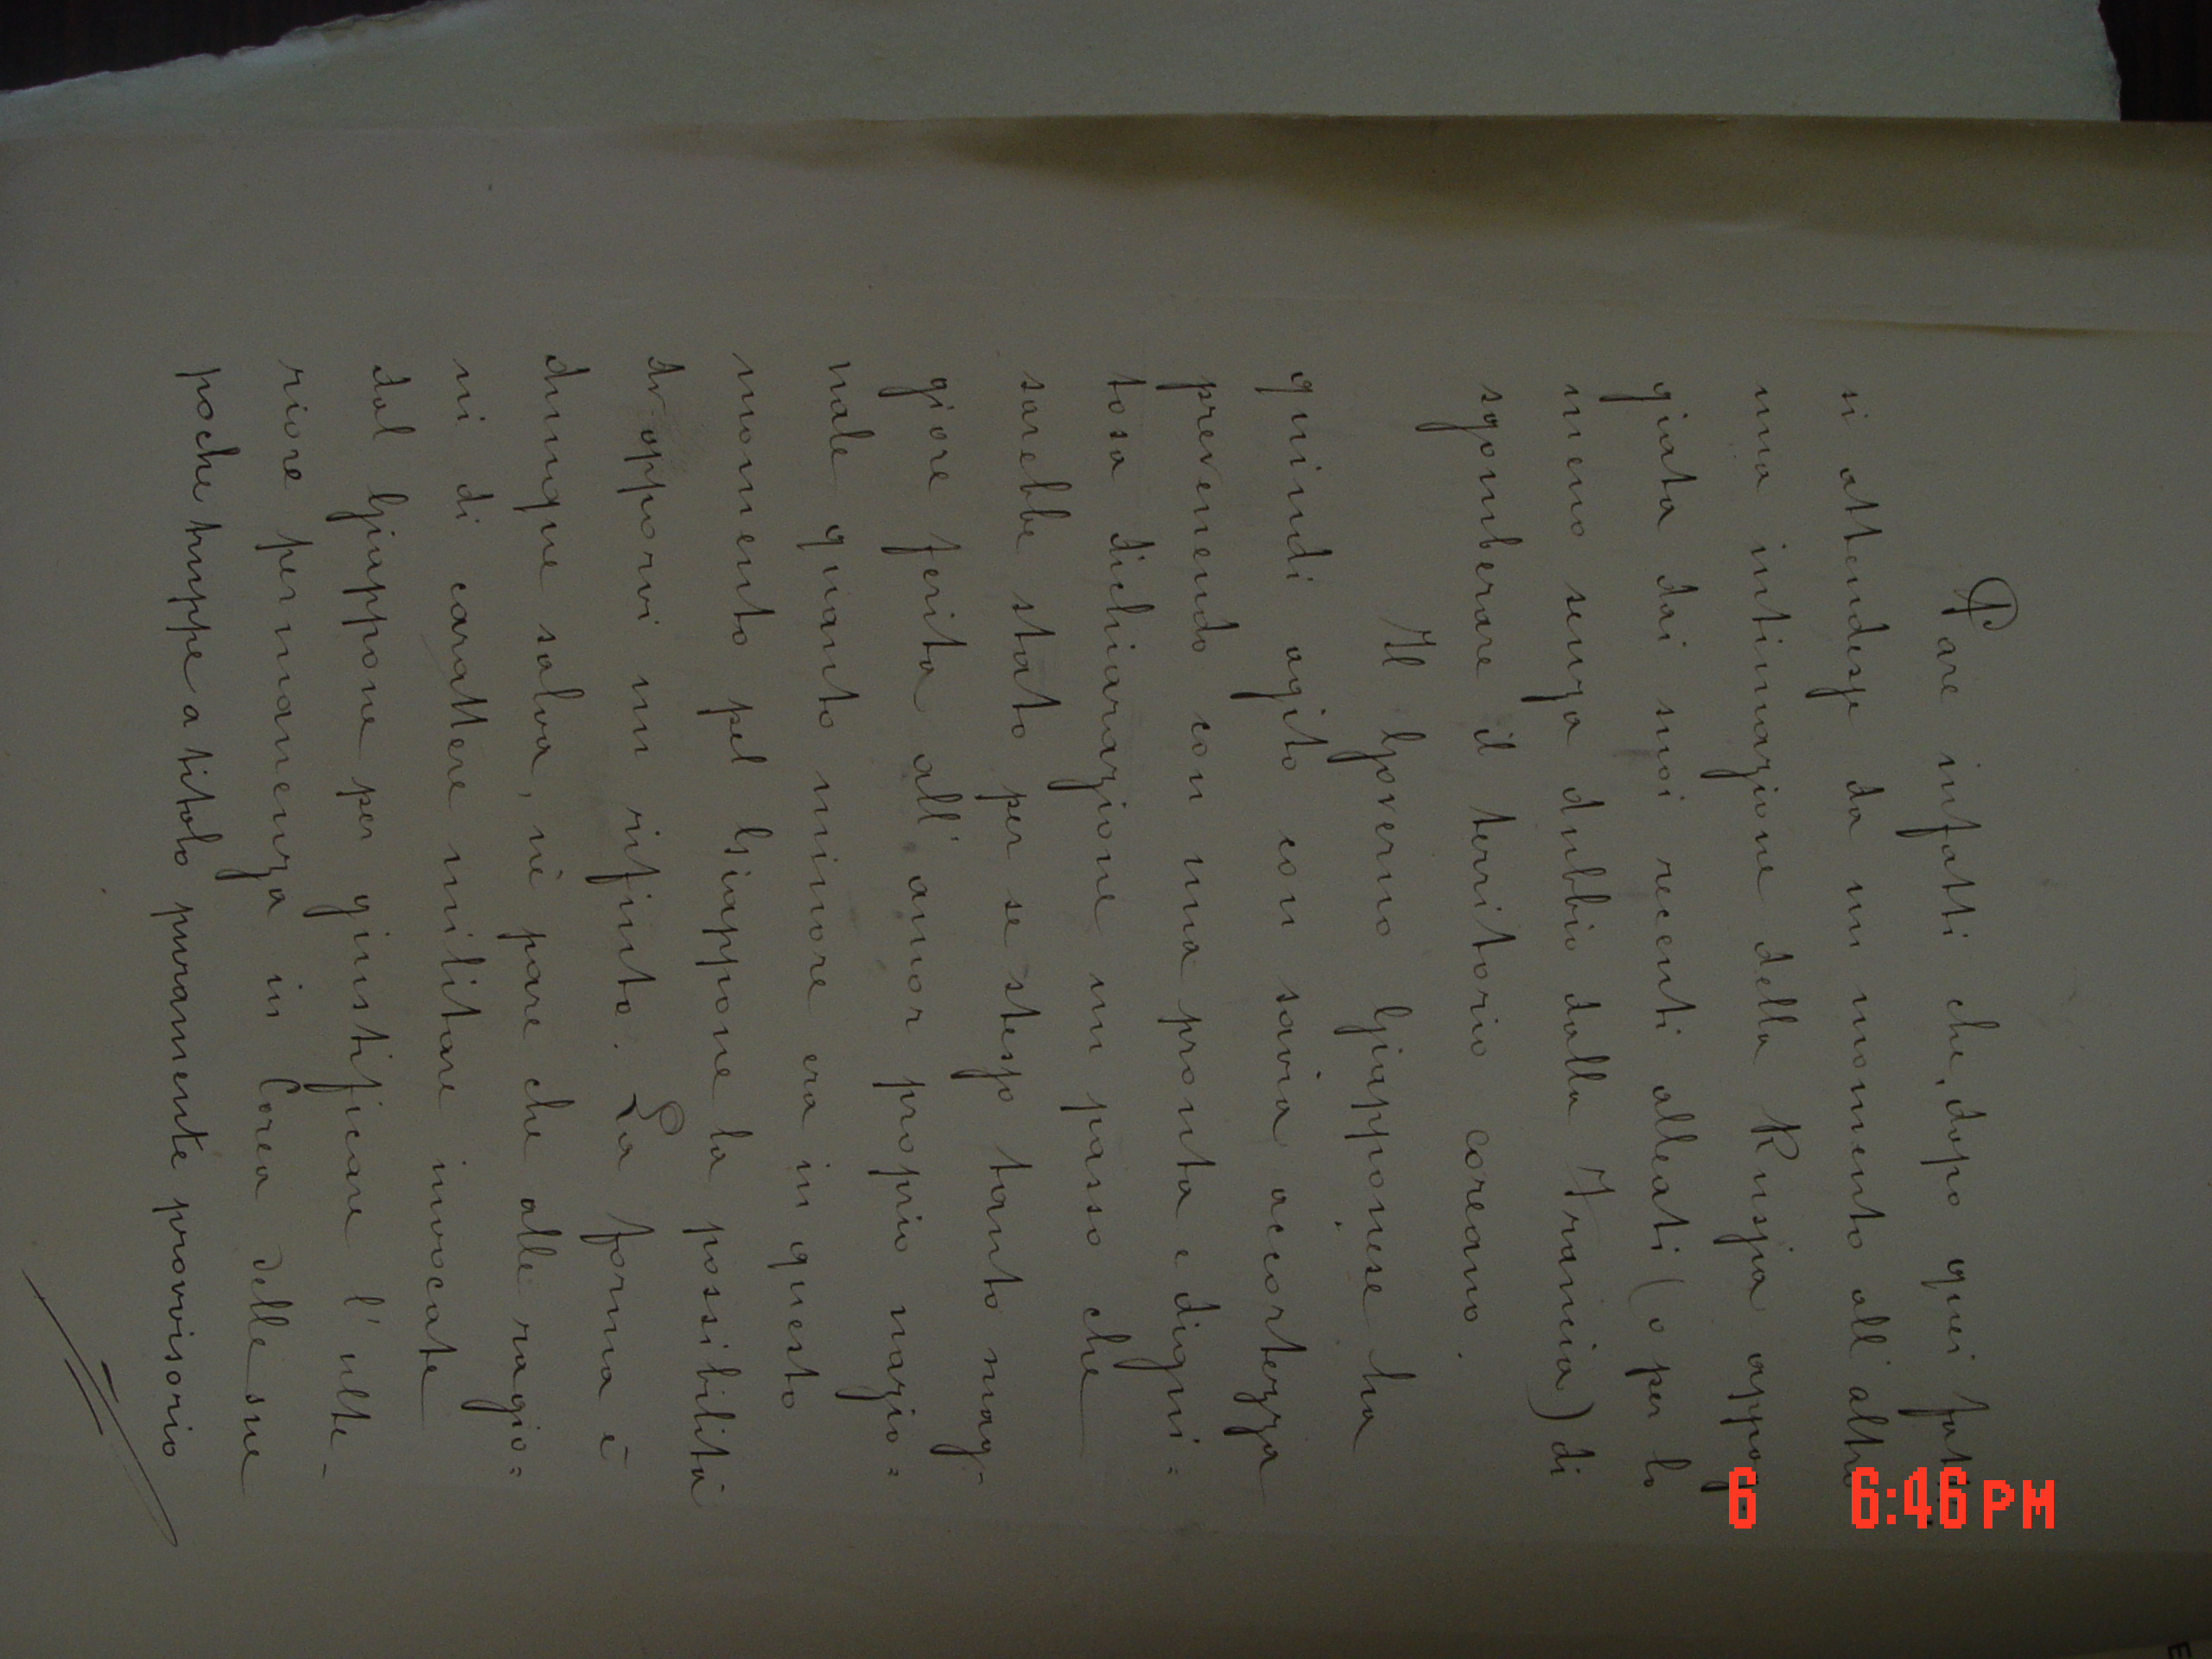 Pare infatti che, dopo quei fatti,
si attendesse da un momento all'altro
una intimazione della Russia appog-
giata dai suoi recenti alleati (o per lo
meno senza dubbio dalla Francia) di
sgomberare il territorio coreano.
Il Governo Giapponese ha
quindi agito con savia accortezza
prevenendo con una pronta e digni=
tosa dichiarazione un passo che
sarebbe stato per se stesso tanto mag-
giore ferita all'amor proprio nazio=
nale quanto minore era in questo
momento pel Giappone la possibilità
di opporvi un rifiuto. La forma è
dunque salva, nè pare che alle ragio=
ni di carattere militare invocate
dal Giappone per giustificare l'ulte-
riore permanenza in Corea delle sue
poche truppe a titolo puramente provvisorio
6 6:46 PM